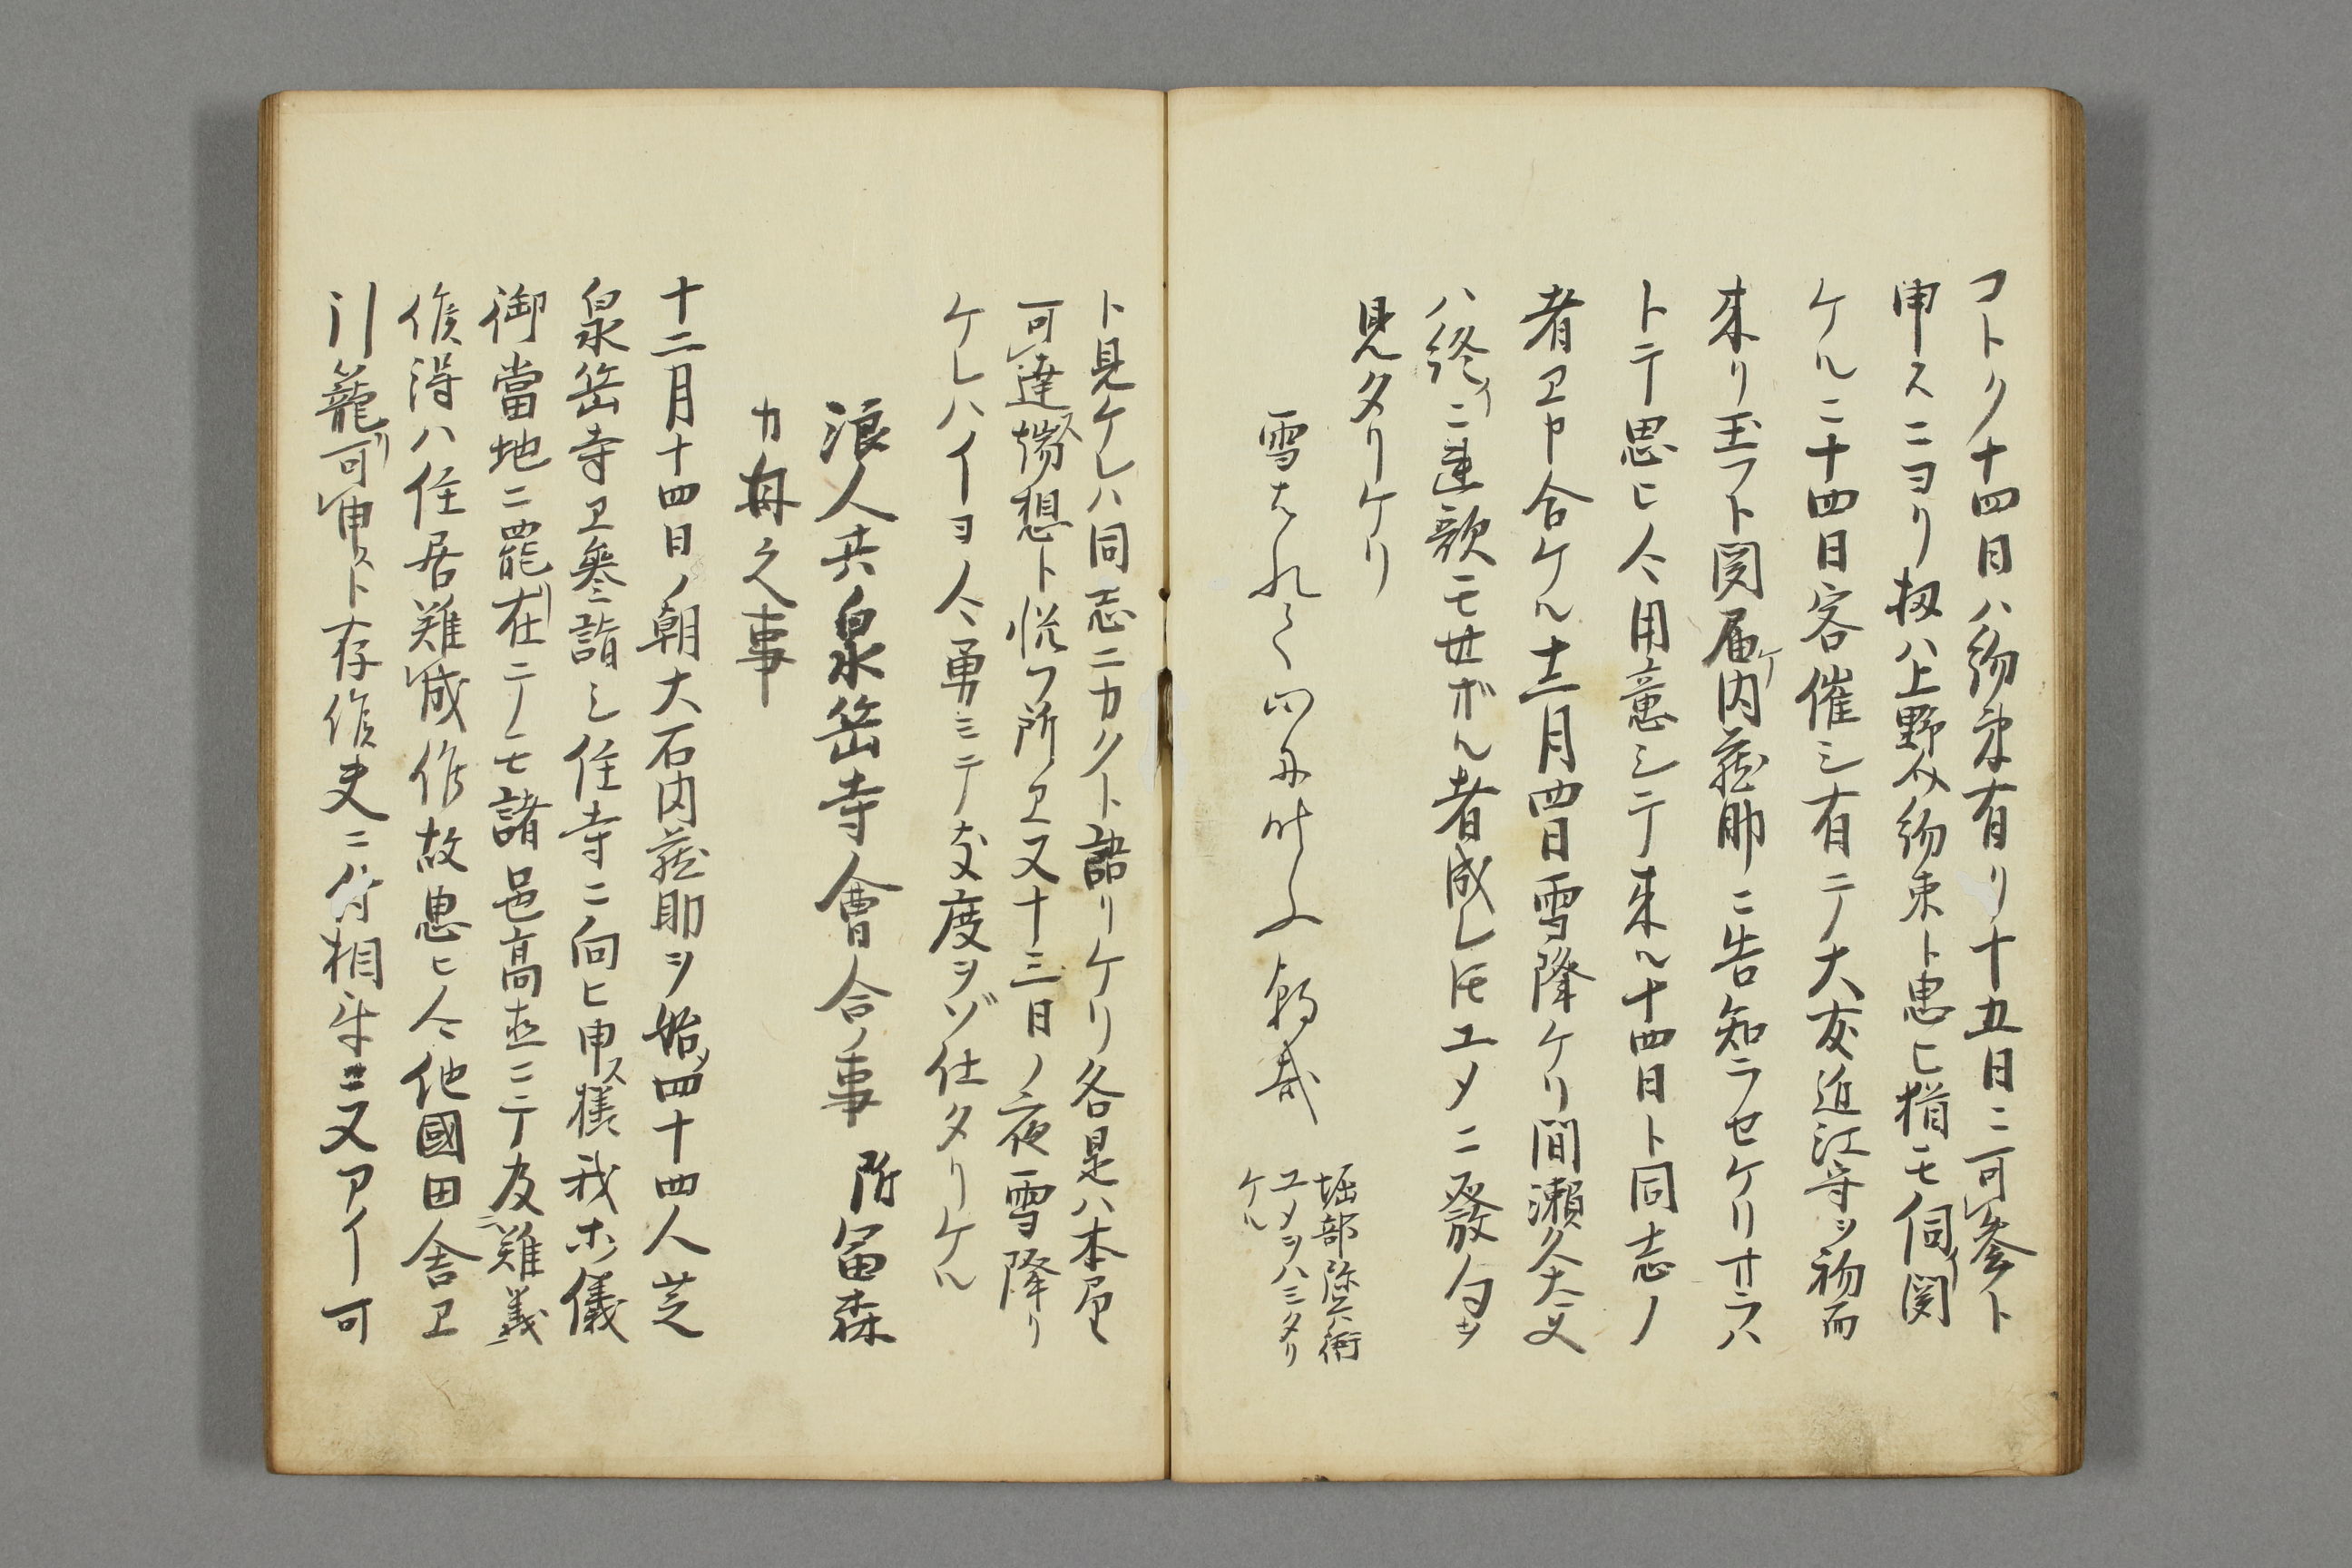 コトク十四日ハ約束有リ十五日ニ可レ参ト
申スニヨリ扨ハ上野介約束ト思ヒ猶モ伺イ聞
ケルニ十四日客催シ有テ大友近江守ヲ初而
来リ玉フト聞届ケ内蔵助ニ告知ラセケリサラハ
トテ思ヒ〱用意シテ来ル十四日ト同志ノ
者ヱ申合ケル十二月四日雪降ケリ間瀬久太夫
ハ終イニ連歌モせザル者成レ𪜈ユメニ發句ヲ
見タリケリ
雪はれて
朝哉
堀部弥兵衛
ユメヲハミタリ
ケル
ト見ケレハ同志ニカクト語リケリ各是ハ本屋
可レ達ス端想ト悦フ所ヱ又十三日ノ夜雪降リ
ケレハイヨ〱勇ミテ支度ヲゾ仕タリケル
浪人共泉岳寺會合ノ事 附冨森
カ母之事
十二月十四日ノ朝大石内蔵助ヲ始メ四十四人芝
泉岳寺ヱ參詣シ住寺ニ向ヒ申ス様我ホ儀
御當地ニ罷リ在テモ諸色高直ニテ及ニ難義
候得ハ住居難レ成候故思ヒ〱他國田舎ヱ
引籠リ可レ申スト存候夫ニ付相
又アイ可